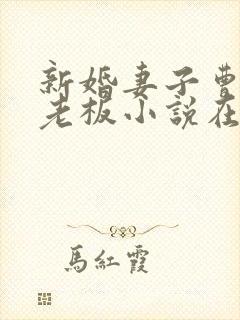 新婚妻子曹
老板小說在
馬紅霞